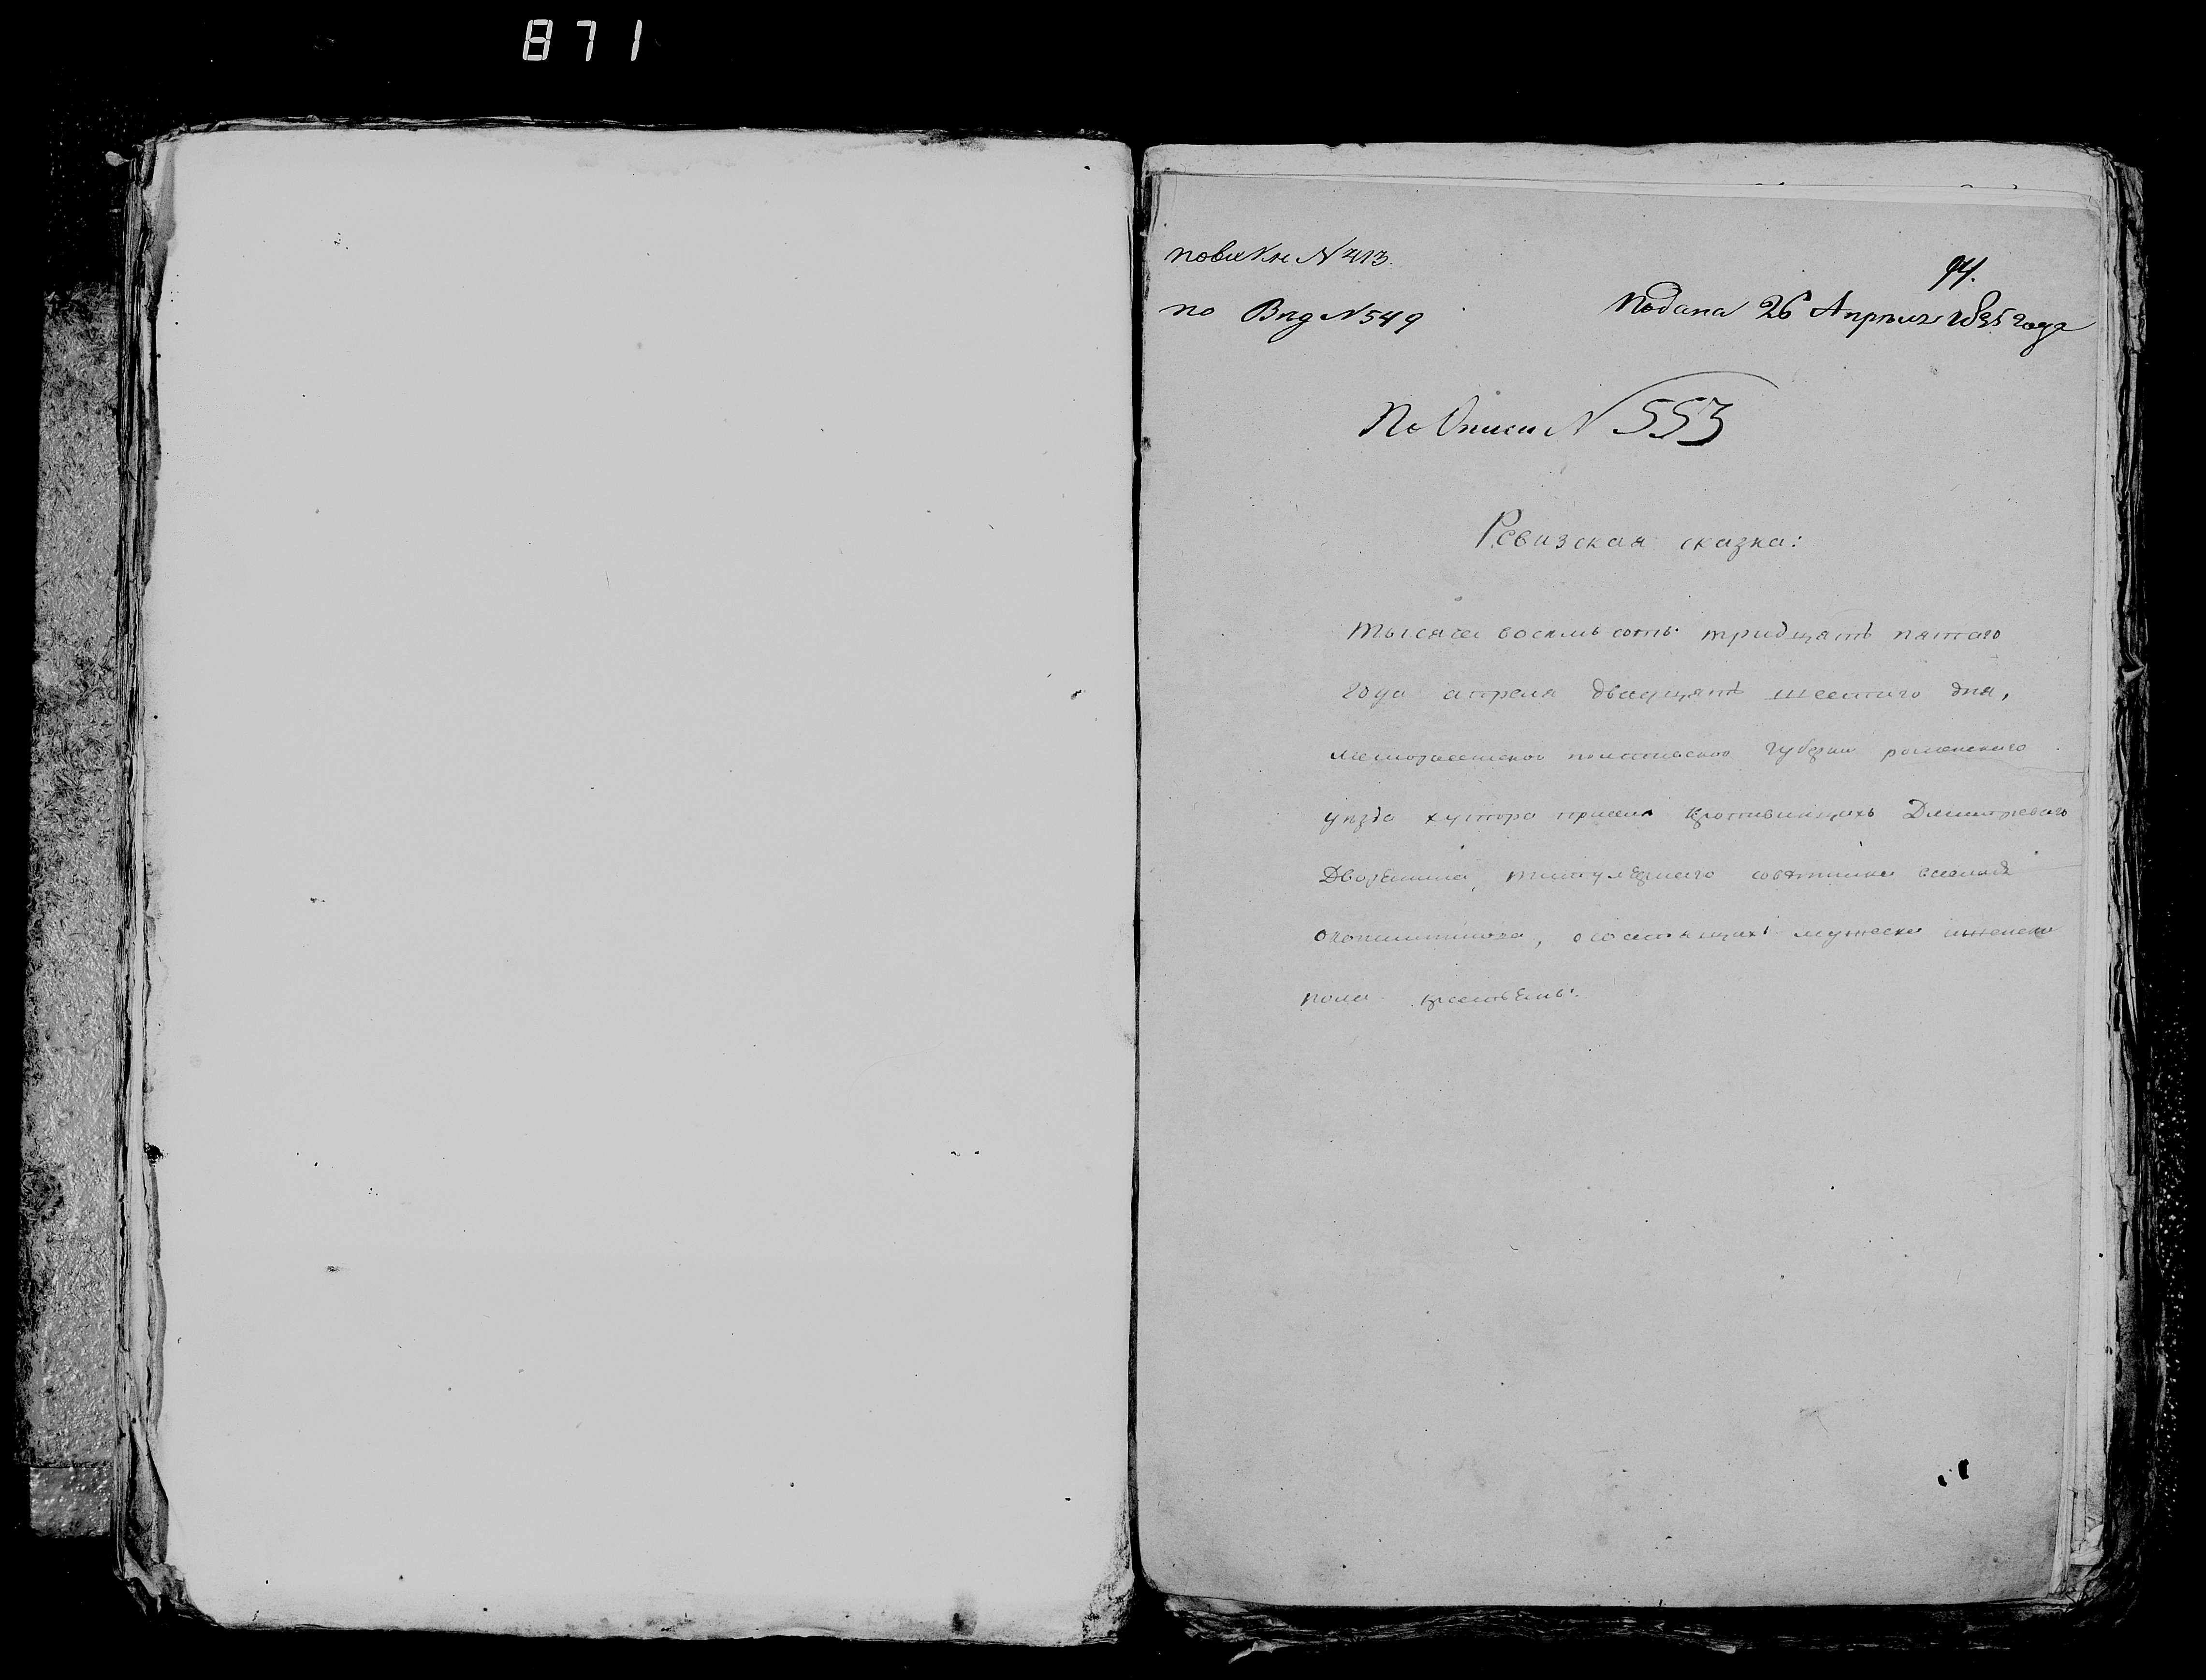 871
N 413.
94.
по Вхд N 549
Подана 26 Апреля 1835 года
По Описи N 553
Ревизская сказка:
тысяча восемь сотъ тридцять пятаго
года апреля двадцять шестаго дня,
малоросийской полтавской губернии роменскаго
уезда хутора при селе Дмитревкого
Дворянина, титулярнаго советника
, о состоящихъ мужеска и женска
пола крестьянъ.